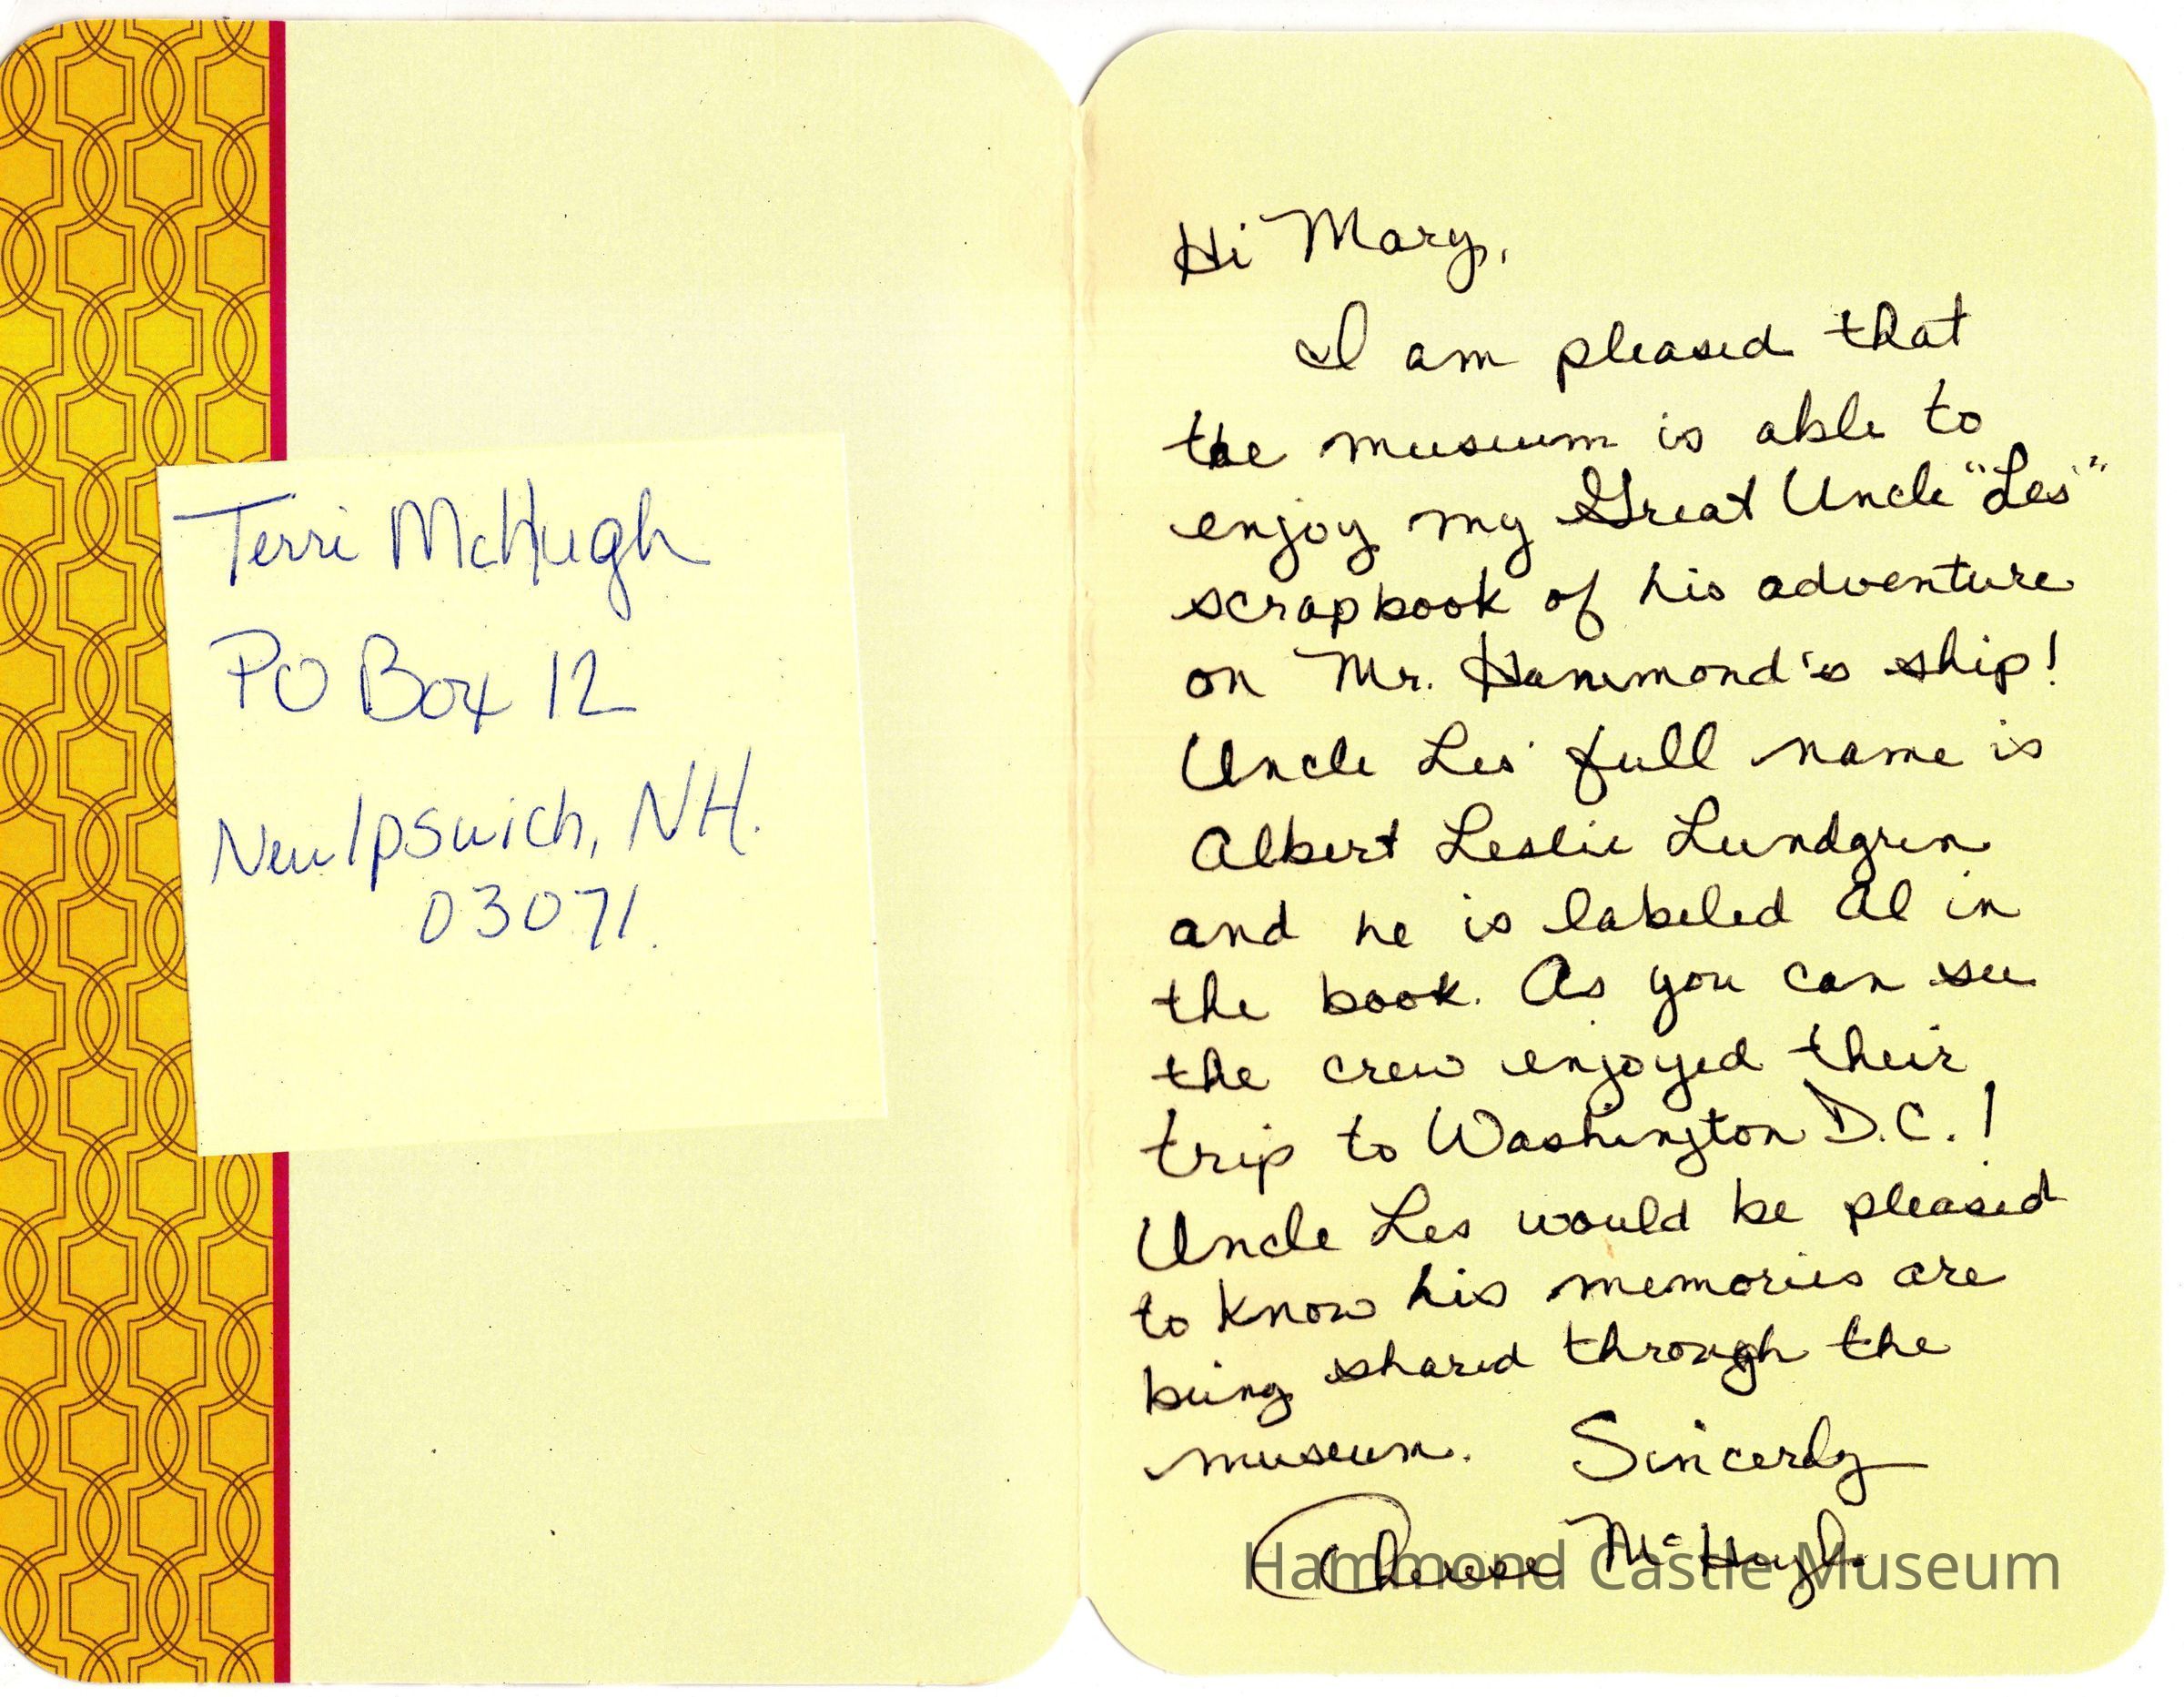 Terri McHugh
PO Box 12
New Ipswich, NH.
03071.
Hi Mary,
I am pleased that
the museum is able to
enjoy my Great Uncle "Les"
scrapbook of his adventure
on Mr. Hammond's ship!
Uncle Les' full name is
Albert Leslie Lundgren
and he is labeled Al in
the book. As you can see
the crew enjoyed their
trip to Washington D.C.!
Uncle Les would be pleased
to know his memories are
being shared through the
museum. Sincerly
McHugh
Hammond Castle Museum